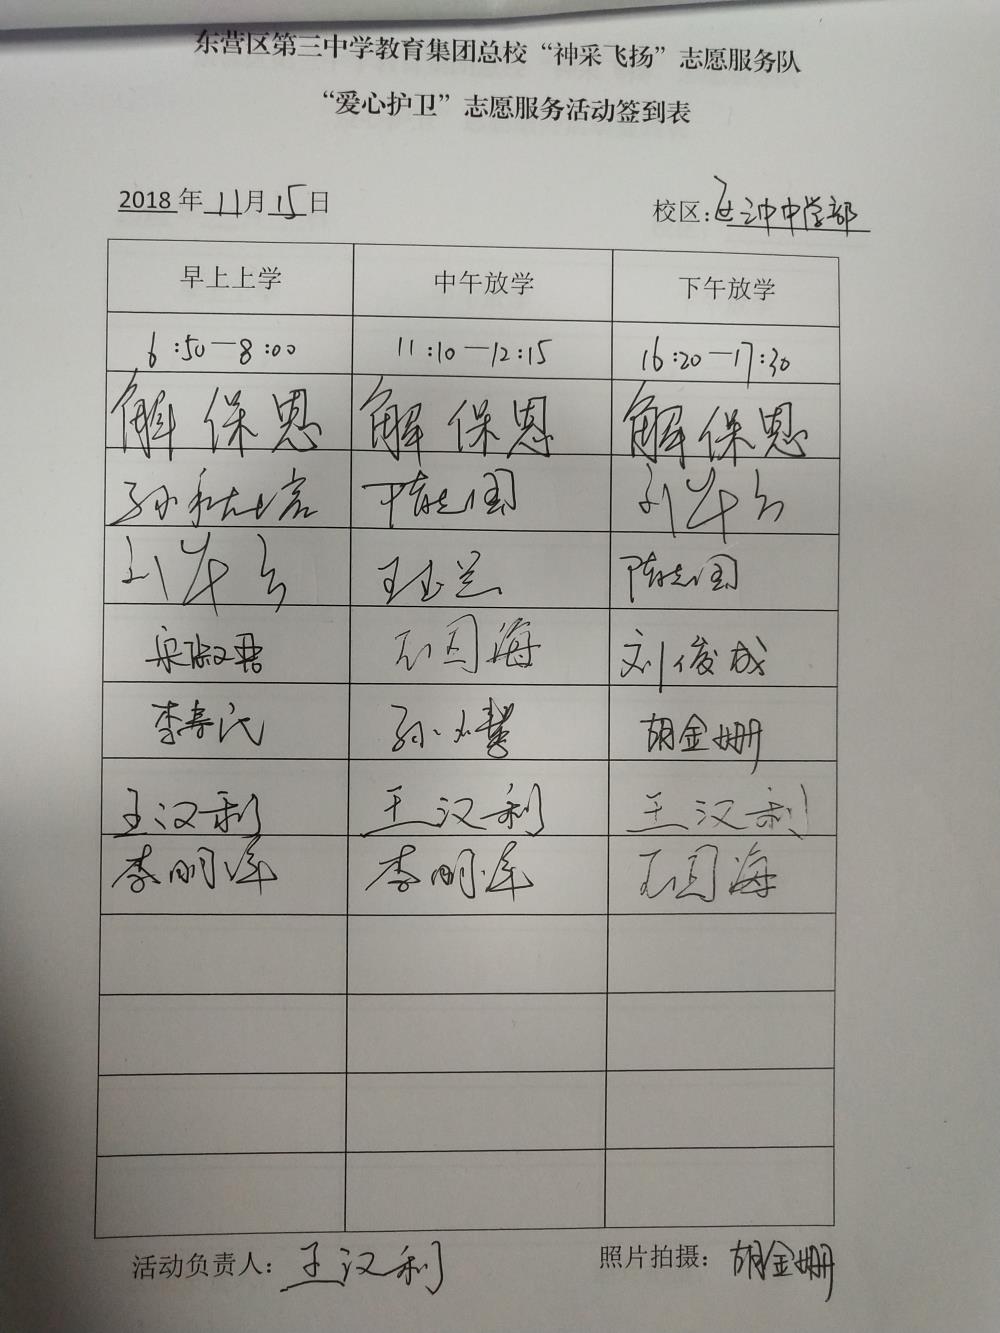 东营区第三中学教育集团总校“神采飞扬”志愿服务队
“爱心护卫”志愿服务活动签到表
2018年11月15日 校区：中学部
早上上学 中午放学 下午放学
6:50—8:00 11:10—12:15 16:20—17:30
解保恩 解保恩 解保恩
孙
王玉兰
石国海 刘俊成
李寿民 孙 胡金姗
王汉利 王汉利 王汉利
李明军 李明军 石国海
活动负责人：王汉利 照片拍摄：胡金姗